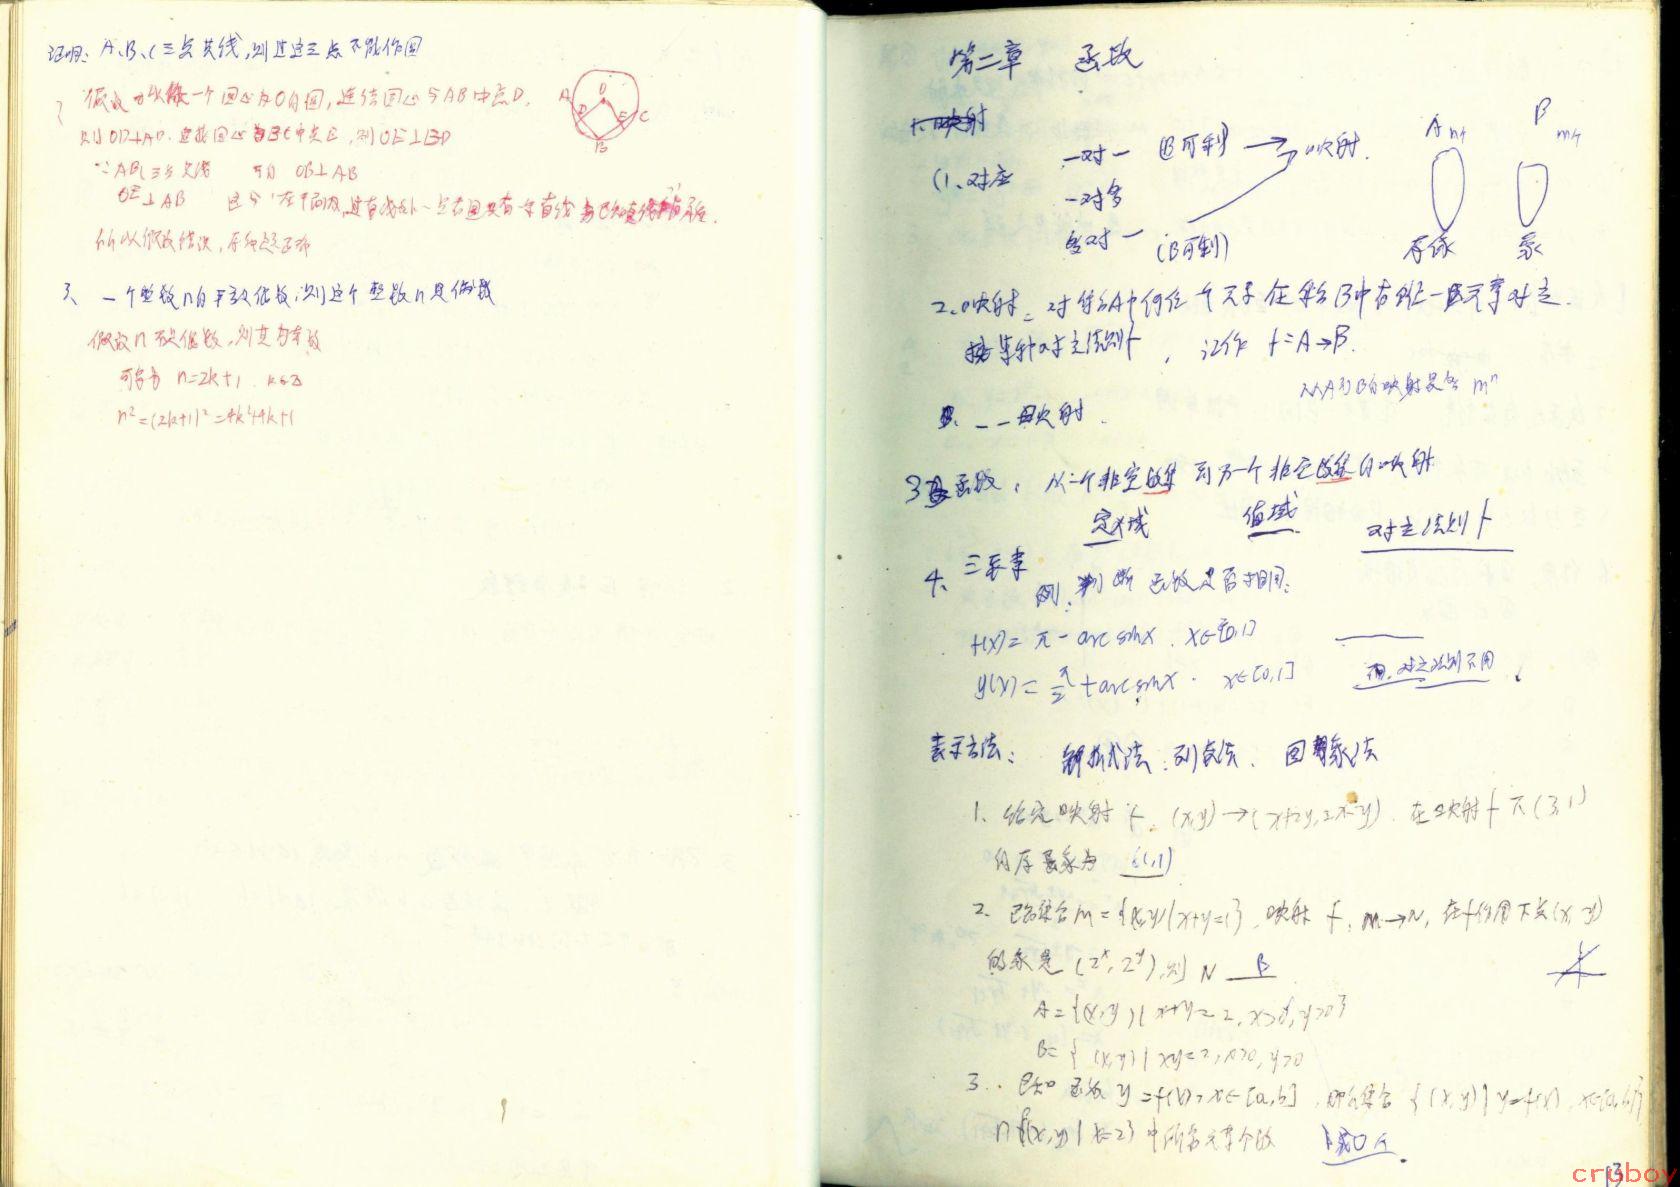 证明: A、B、C三点共线,则过这三点不能作圆
假设 一个圆心为O的圆,连结圆心与AB中点D,
则OD⊥AD. 连接圆心与BC中点E,则OE⊥BD
∵ABC三点共线 可知 OD⊥AB
OE⊥AB 这与"在平面内,过直线外一点有且只有一条直线与已知直线垂直
所以假设错误,原命题正确
A
O
D
E
C
B
3、一个整数n的平方是偶数,则这个整数n是偶数
假设n不是偶数,则其为奇数
可写为 n=2k+1. k∈Z
n²=(2k+1)²=4k²+4k+1
第二章 函数
映射
(1、对应
一对一 (B可剩) → 映射.
一对多
多对一 (B可剩)
A n个
B m个
原像
象
2.映射: 对集合A中任何一个元素 在集合B中有唯一元素对应.
按某种对应法则f , 记作 f:A→B.
从A到B的映射共有 mⁿ
一一映射.
3 函数, 从一个非空数集 到另一个非空数集的映射
定义域 值域 对应法则 f
4. 三要素
例: 判断函数是否相同:
f(x)= π - arc sinx . x∈[0,1]
y(x)= π/2 + arc sinx . x∈[0,1]
对应法则不同
表示方法: 解析式法. 列表法. 图象法
1. 给定映射 f. (x,y)→(x+2y,2x-y). 在映射f下(3,1)
的原象为 (1,1)
2. 已知集合M={(x,y)|x+y=1}, 映射 f: M→N, 在f作用下点(x, y)
的象是 (2ˣ, 2ʸ),则 N B
A={(x,y)|x+y=2, x>0, y>0}
B={(x,y)|xy=2, x>0, y>0
3. 已知函数y=f(x), x∈[a,b] , 那么集合 {(x,y)|y=f(x), x∈[a,b]}
∩{(x,y)|x=2} 中所含元素个数 1或0个.
13
cruboy